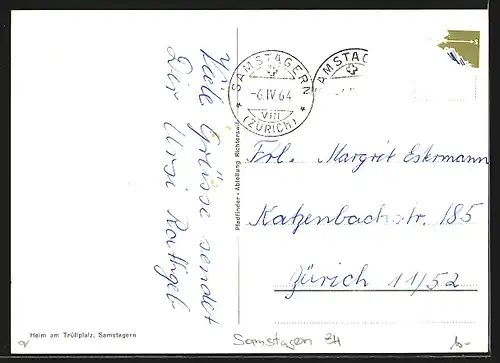 Viele Grüsse sendet
Dir Ursi Rathgeb
SAMSTAGERN
-6.IV.64
VIII
(ZÜRICH)
AMSTAG
Pfadfinder-Abteilung Richterswil
Frl. Margrit Estermann
Katzenbachstr. 185
Zürich 11/52
Heim am Trüllplatz, Samstagern
Samstagern ZH